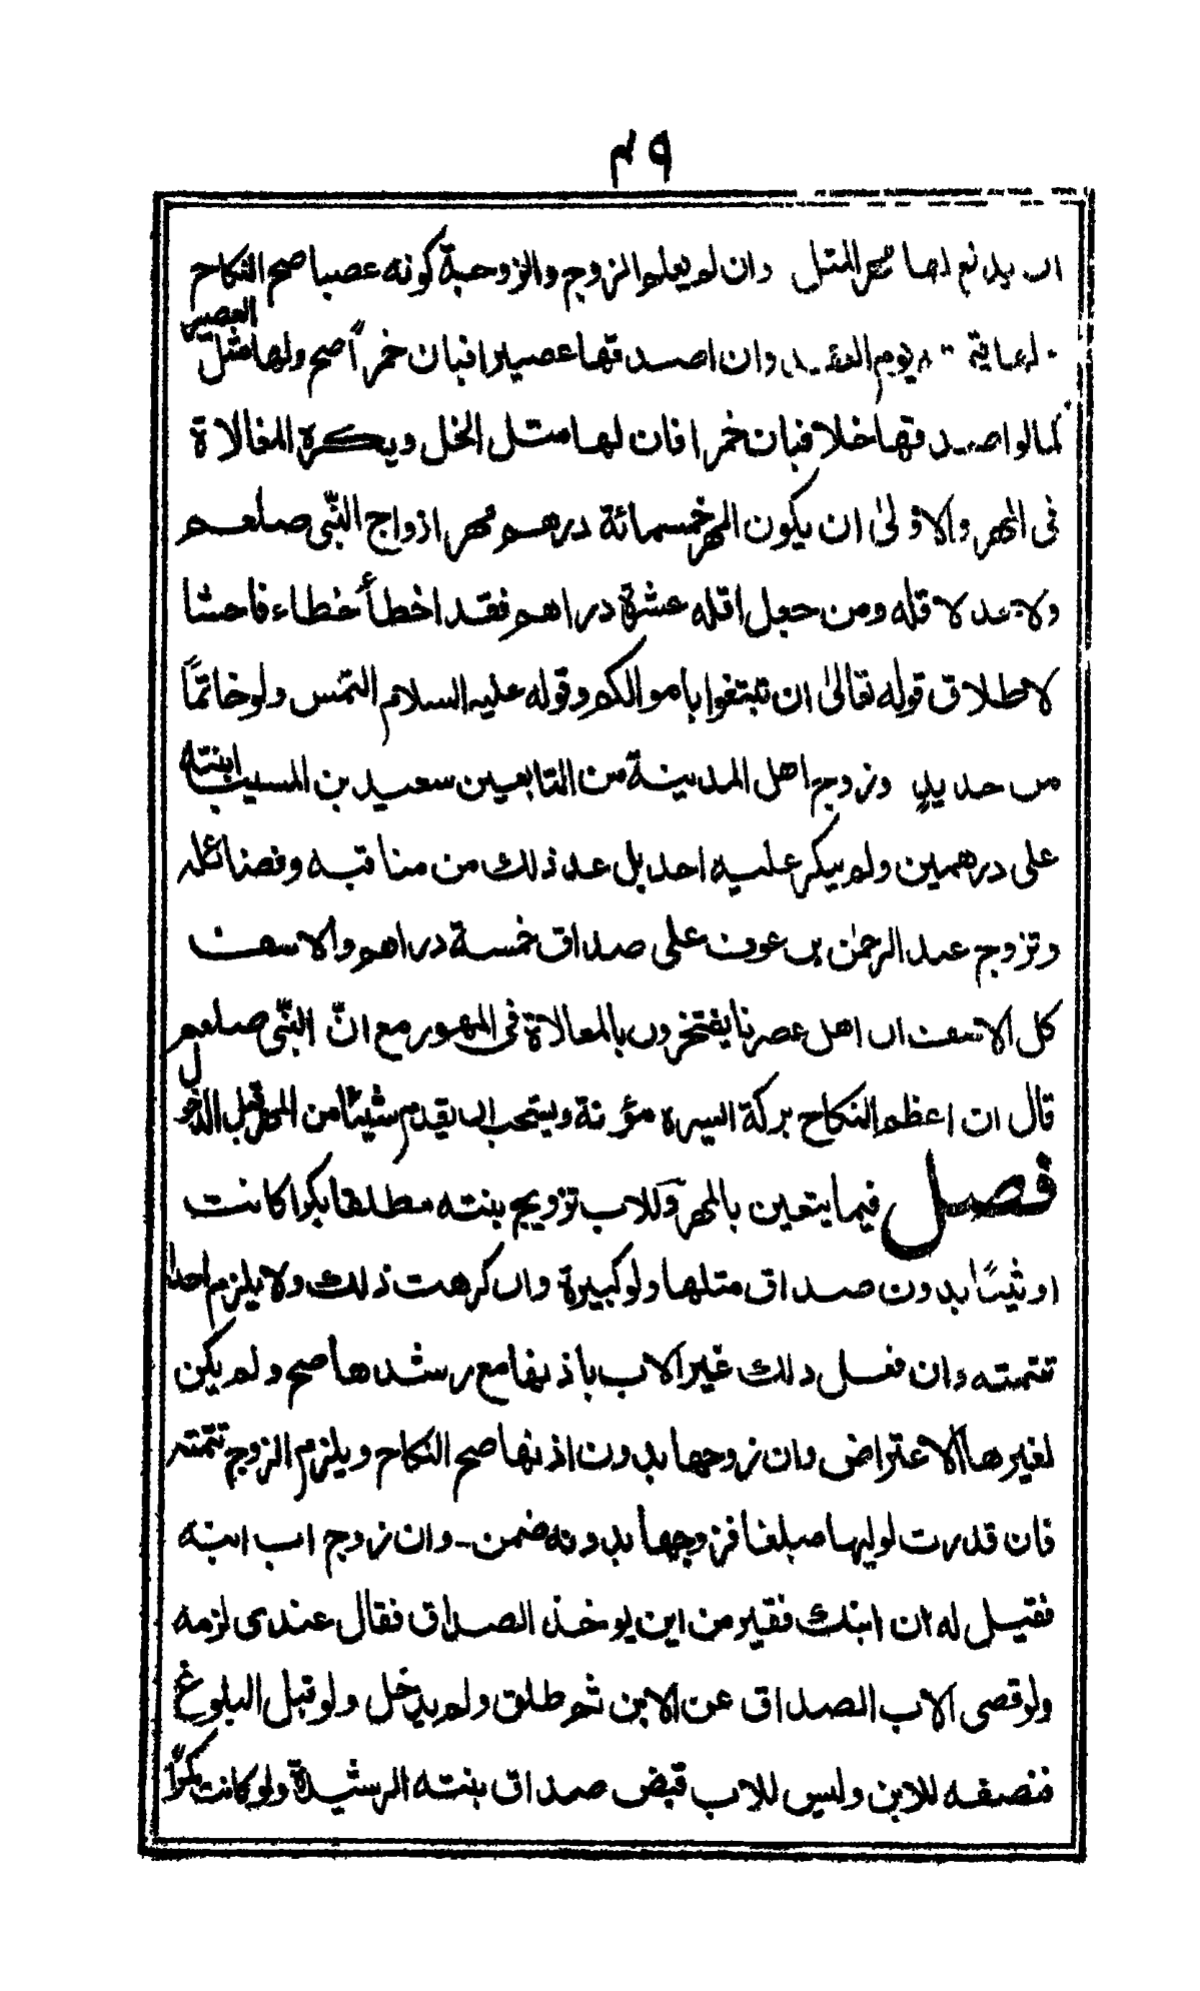 ٤٩
ان يدفع لها مهر المثل وان لم يعلم الزوج والزوجة كونه عصبا صح النكاح
ولها قيمته يوم العقد وان اصدقها عصيرا فبان خمرًا صح ولها مثل العصير
كما لو اصدقها خلا فبان خمرا فان لها مثل الخل ويكره المغالاة
فى المهر والاولىٰ ان يكون المهر خمسمائة درهم مهر ازواج النبّى صلعم
ولا حد لاقله ومن جعل اقله عشرة دراهم فقد اخطأ خطاء فاحشا
لاطلاق قوله تعالىٰ ان تبتغوا باموالكم وقوله عليه السلام التمس ولو خاتمًا
من حديدٍ وزوج اهل المدينة من التابعين سعيد بن المسيب ابنته
على درهمين ولم ينكر عليه احد بل عد ذلك من مناقبه وفضائله
وتزوج عبد الرحمٰن بن عوف على صداق خمسة دراهم والاسف
كل الاسف ان اهل عصرنا يفتخرون بالمغالاة فى المهور مع انّ النبّى صلعم
قال ان اعظم النكاح بركة ايسره مؤنة ويستحب ان يقدم شيئًا من المهر قبل الدخول
فصل فيما يتعين بالمهر وللاب تزويج بنته مطلقا بكرا كانت
او ثيبًا بدون صداق مثلها ولو كبيرة وان كرهت ذلك ولا يلزم احدا
تتمته وان فعل ذلك غير الاب باذنها مع رشدها صح ولم يكن
لغيرها الاعتراض وان زوجها بدون اذنها صح النكاح ويلزم الزوج تتمته
فان قدرت لوليها مبلغا فزوجها بدونه ضمن - وان زوج اب ابنه
فقيل له ان ابنك فقير من اين يوخذ الصداق فقال عندى لزمه
ولو قضى الاب الصداق عن الابن ثم طلق ولم يدخل ولو قبل البلوغ
فنصفه للابن وليس للاب قبض صداق بنته الرشيدة ولو كانت بكرًا